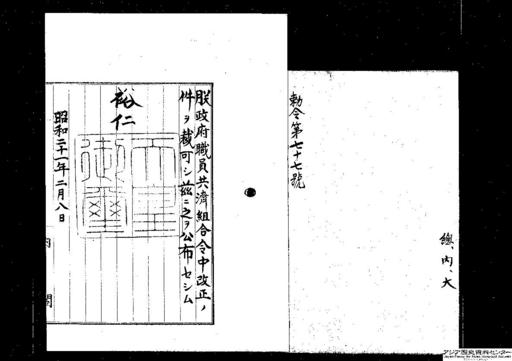 勅令第七十七號
總、內、大
朕政府職員共濟組合令中改正ノ
件ヲ裁可シ茲ニ之ヲ公布セシム
裕仁
天皇御璽
昭和二十一年二月八日
内閣
アジア歴史資料センター